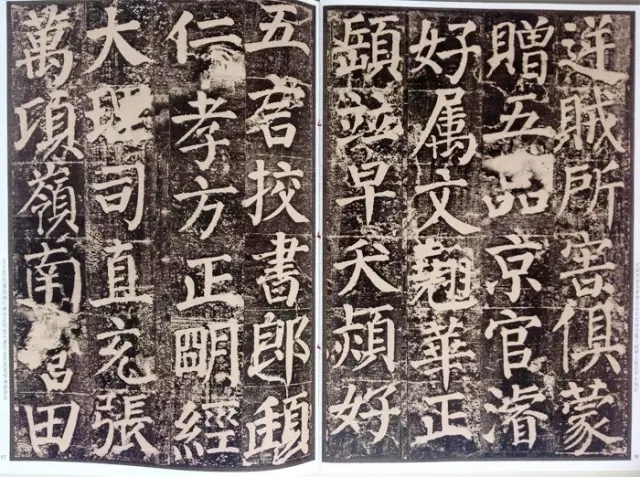 逆賊所害俱蒙
贈五品京官濬
好属文翹華正
顗竝早夭熲好
五言挍書郎頲
仁孝方正眀經
大理司直充張
萬頃嶺南田